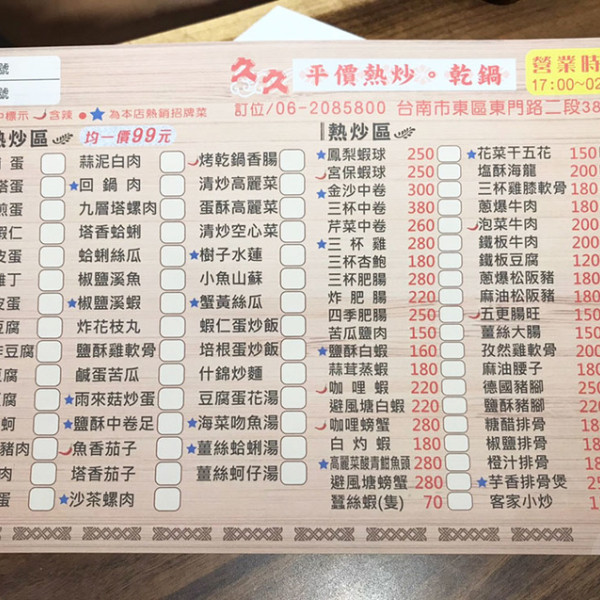 號
久久 平價熱炒。乾鍋
營業時
17:00~02
號
中標示 含辣 為本店熱銷招牌菜
訂位/06-2085800 台南市東區東門路二段38
熱炒區 均一價99元
蛋
蒜泥白肉
烤乾鍋香腸
塔蛋
回鍋肉
清炒高麗菜
煎蛋
九層塔螺肉
蛋酥高麗菜
蝦仁
塔香蛤蜊
清炒空心菜
蛋
蛤蜊絲瓜
樹子水蓮
丁
椒鹽溪魚
小魚山蘇
皮蛋
椒鹽溪蝦
蟹黃絲瓜
豆腐
炸花枝丸
蝦仁蛋炒飯
炸豆腐
鹽酥雞軟骨
培根蛋炒飯
豆腐
鹹蛋苦瓜
什錦炒麵
腐
雨來菇炒蛋
豆腐蛋花湯
蚵
鹽酥中卷足
海菜吻魚湯
豬肉
魚香茄子
薑絲蛤蜊湯
肉
塔香茄子
薑絲蚵仔湯
蛋
沙茶螺肉
熱炒區
鳳梨蝦球 250
宮保蝦球 250
金沙中卷 300
三杯中卷 260
芹菜中卷 260
三杯雞 280
三杯杏鮑 180
三杯肥腸 220
炸肥腸 220
四季肥腸 250
苦瓜鹹肉 150
鹽酥白蝦 160
蒜茸蒸蝦 180
咖哩蝦 220
避風塘白蝦 220
咖哩螃蟹 280
白灼蝦 180
高麗菜酸青魽魚頭 280
避風塘螃蟹 280
蠶絲蝦(隻) 70
花菜干五花 150
塩酥海龍 200
三杯雞膝軟骨 180
蔥爆牛肉 180
泡菜牛肉 200
鐵板牛肉 200
鐵板豆腐 120
蔥爆松阪豬 180
麻油松阪豬 180
五更腸旺 150
薑絲大腸 150
孜然雞軟骨 200
麻油腰子
德國豬腳 250
鹽酥豬腳 220
糖醋排骨 180
椒鹽排骨 180
橙汁排骨 180
芋香排骨煲 25
客家小炒